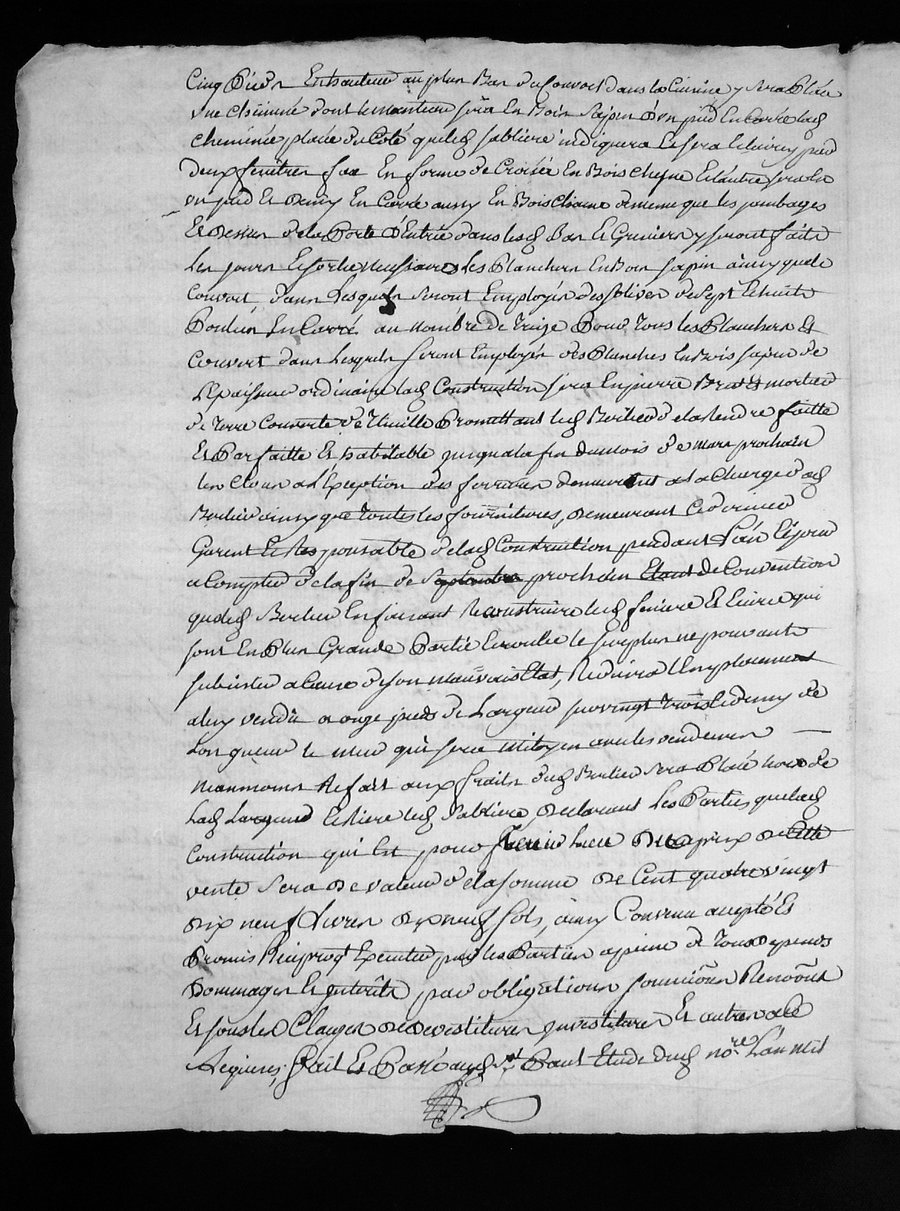 Cinq Pieds En hauteur au plus Bas du Couvert dans la Cuisine y sera Placé
une Cheminé dont le manteau sera En Bois Sapin d'un pied En Carré lad
Cheminée placée du Coté quelad Sabliere indiquera Et sera Eclairé par
deux fenêtres l'une En forme de Croisée En Bois Chesne Et l'autre sera de
un pied Et demy En Carré aussy En Bois Chesne de meme que les jambages
Et dessus de la Porte d'Entrée dans lesd Bas Et Greniers y seront faits
les jours Et sorties necessaires les Planchers En Bois sapin ainsy que le
Couvert dans Lesquels seront Employés des solives de Sept Et huit
Pouces En Carré au nombre de treize Pour Tous les Planchers Et
Couvert dans Lesquels seront Employés des Planches En Bois sapin de
L'Epaisseur ordinaire lad Construction sera En pierre Brute Et mortier
de Terre Couverte de Thuille Promettant led Berlier de la Rendre faitte
Et Parfaitte Et habitable jusqu'a la fin du mois de mars prochain
les Cloux a L'Exception des ferrures demeurant a la Charge dud
Berlier ainsy que toutes les fournitures, demeurant Ce dernier
Garent Et Responsable de lad Construction pendant L'an Et jour
a Compter de la fin de Septembre prochain Etant de Convention
que led Berlier En faisant Reconstruire led feniere Et Ecurie qui
sont En Plus Grande Partie Ecroulée le surplus ne pouvant
subsister a Cause de son mauvais Etat, Reduira L'Emplacement
a luy vendu a onze pieds de Largeur sur vingt trois Et demy de
Longueur le mur qui sera Mitoyen avec les vendeurs
neanmoins Refait aux fraits dud Berlier sera Placé hors de
Lad Largeur Et tiere led Sabliere declarant Les Parties que lad
Construction qui Est pour tenir Lieu du prix de Cette
vente sera de valeur de la somme de Cent quatre vingt
dix neuf Livres dix neuf sols, ainsy Convenu accepté Et
Promis Reciproqt Executer par les Parties a peine de Tous depends
Dommages Et interêts par obligations soumiõns Renoõns
Et sous les Clauses de devestitures investitures Et autres a ce
Requises, fait Et Passé aud st Paul Etude dud nore L'an mil